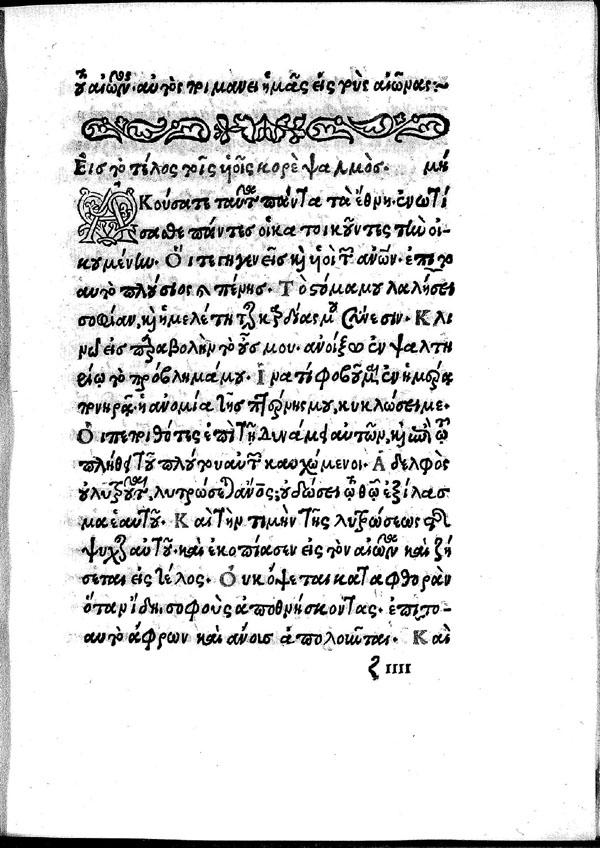 τοῦ αἰῶνος. αὐτὸς ποιμανεῖ ἡμᾶς εἰς τοὺς αἰῶνας:~
Εἰς τὸ τέλος τοῖς υἱοῖς κορὲ ψαλμὸς. μη
Ἀκούσατε ταῦτα πάντα τὰ ἔθνη. ἐνωτί
σασθε πάντες οἱ κατοικοῦντες τὴν οἰ
κουμένην. Οἵ τε γηγενεῖς καὶ οἱ υἱοὶ τῶν ἀνων. ἐπιτο
αυτὸ πλούσιος καὶ πένης. Τὸ στόμα μου λαλήσει
σοφίαν, καὶ ἡ μελέτη τῆς καρδίας μου σύνεσιν. Κλι
νῶ εἰς παραβολὴν τὸ οὖς μου. ἀνοίξω ἐν ψαλτη
ρίῳ τὸ πρόβλημά μου. Ἱνατί φοβοῦμαι ἐν ἡμέρᾳ
πονηρᾷ. ἡ ἀνομία τῆς πτέρνης μου, κυκλώσει με.
Οἱ πεποιθότες ἐπὶ τῇ δυνάμει αὐτῶν, καὶ ἐπὶ τῷ
πλήθει τοῦ πλούτου αὐτῶν καυχώμενοι. Ἀδελφὸς
οὐ λυτροῦται, λυτρώσεται ἄνος; οὐ δώσει τῷ θῷ ἐξίλασ
μα ἑαυτοῦ. Καὶ τὴν τιμὴν τῆς λυτρώσεως τῆς
ψυχῆς αὐτοῦ. καὶ ἐκοπίασεν εἰς τὸν αἰῶνα καὶ ζή
σεται εἰς τέλος. Οὐκ ὄψεται καταφθορὰν
ὅταν ἴδῃ σοφοὺς ἀποθνήσκοντας. ἐπιτο-
αυτὸ ἄφρων καὶ ἄνοις ἀπολοῦνται. Καὶ
ζ IIII